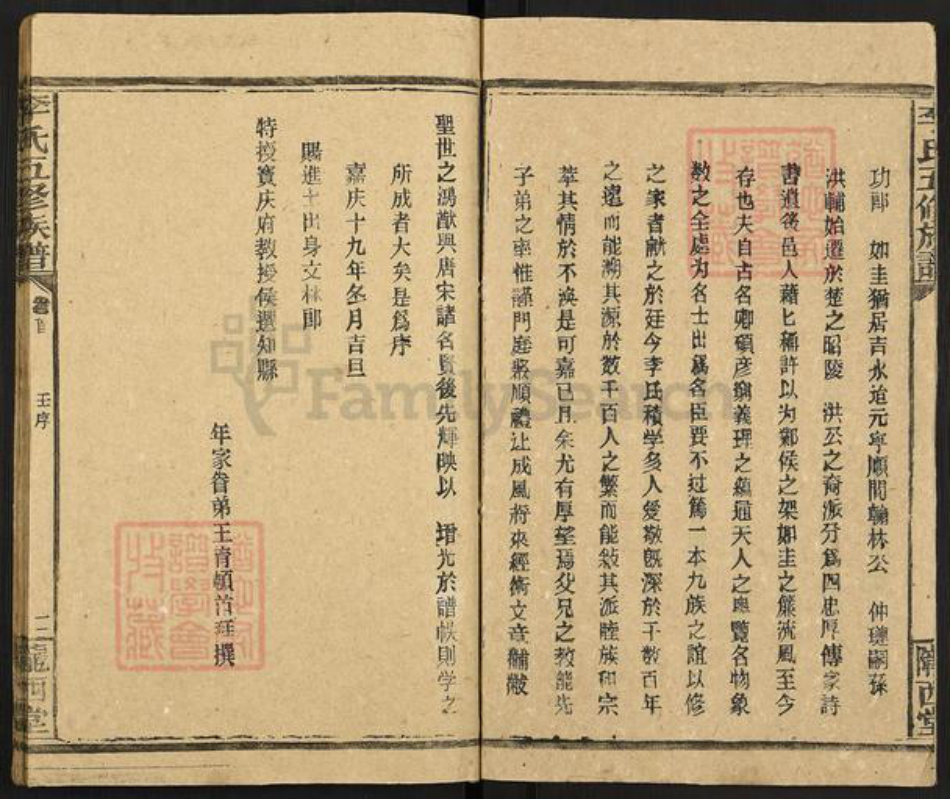 功郎　如圭猶居吉永迨元寧順間翰林公　仲璉嗣孫
洪輔始遷於楚之昭陵　洪公之裔派分為四忠厚傳家詩
書道後邑人藉匕稱許以为鄴侯之架如圭之簾流風至今
存也夫自古名卿碩彦窮義理之蘊通天人之奥覽名物象
数之全處为名士出為名臣要不过篤一本九族之誼以修
之家者献之於廷今李氏積学多人爱敬既深於千数百年
之遠而能溯其源於数千百人之繁而能敍其派睦族和宗
萃其情於不渙是可嘉已且余尤有厚望焉父兄之教能先
子弟之率惟謹門庭孝順禮让成風将來經術文章黼黻
聖世之鴻猷與唐宋諸名賢後先輝映以　增光於譜帙則学之
所成者大矣是為序
嘉庆十九年冬月吉旦
賜進士出身文林郎
特授寳庆府教授候選知縣
年家眷弟王育頓首拜撰
李氏五修族譜
卷首
王序
三
隴西堂
李氏五修族譜
隴西堂
FamilySearch